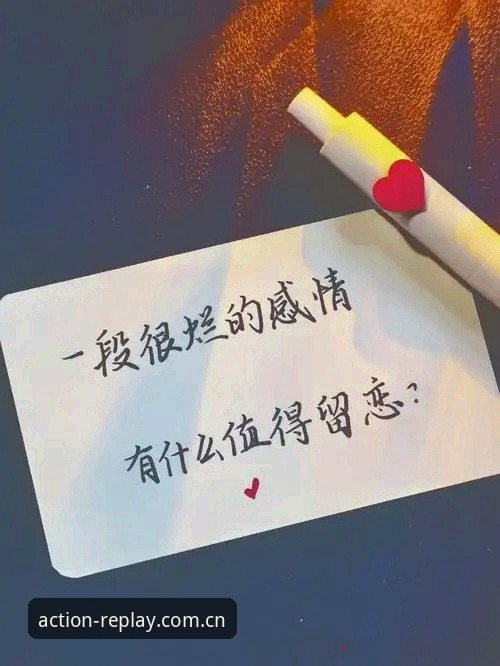 一段很烂的感情
有什么值得留恋?
action-replay.com.cn